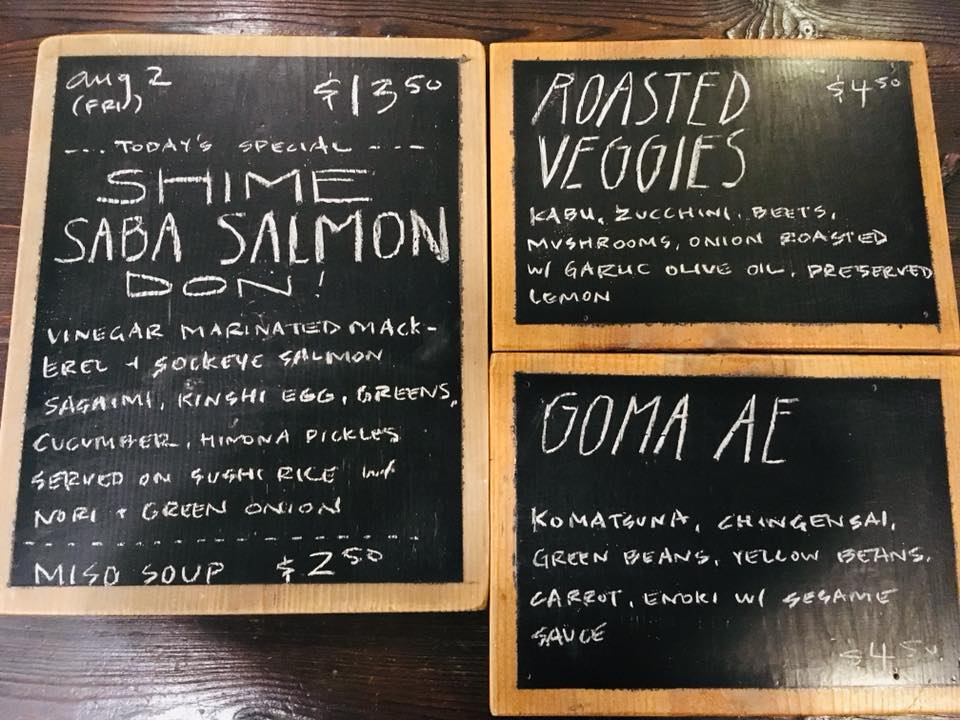 aug 2
(FRI)
$13.50
--- TODAY'S SPECIAL ---
SHIME
SABA SALMON
DON!
VINEGAR MARINATED MACK-
EREL + SOCKEYE SALMON
SASHIMI, KINSHI EGG, GREENS,
CUCUMBER, HINONA PICKLES
SERVED ON SUSHI RICE w/
NORI + GREEN ONION
MISO SOUP $2.50
ROASTED $4.50
VEGGIES
KABU, ZUCCHINI, BEETS,
MUSHROOMS, ONION ROASTED
W/ GARLIC OLIVE OIL, PRESERVED
LEMON
GOMA AE
KOMATSUNA, CHINGENSAI,
GREEN BEANS, YELLOW BEANS,
CARROT, ENOKI W/ SESAME
SAUCE
$4.50